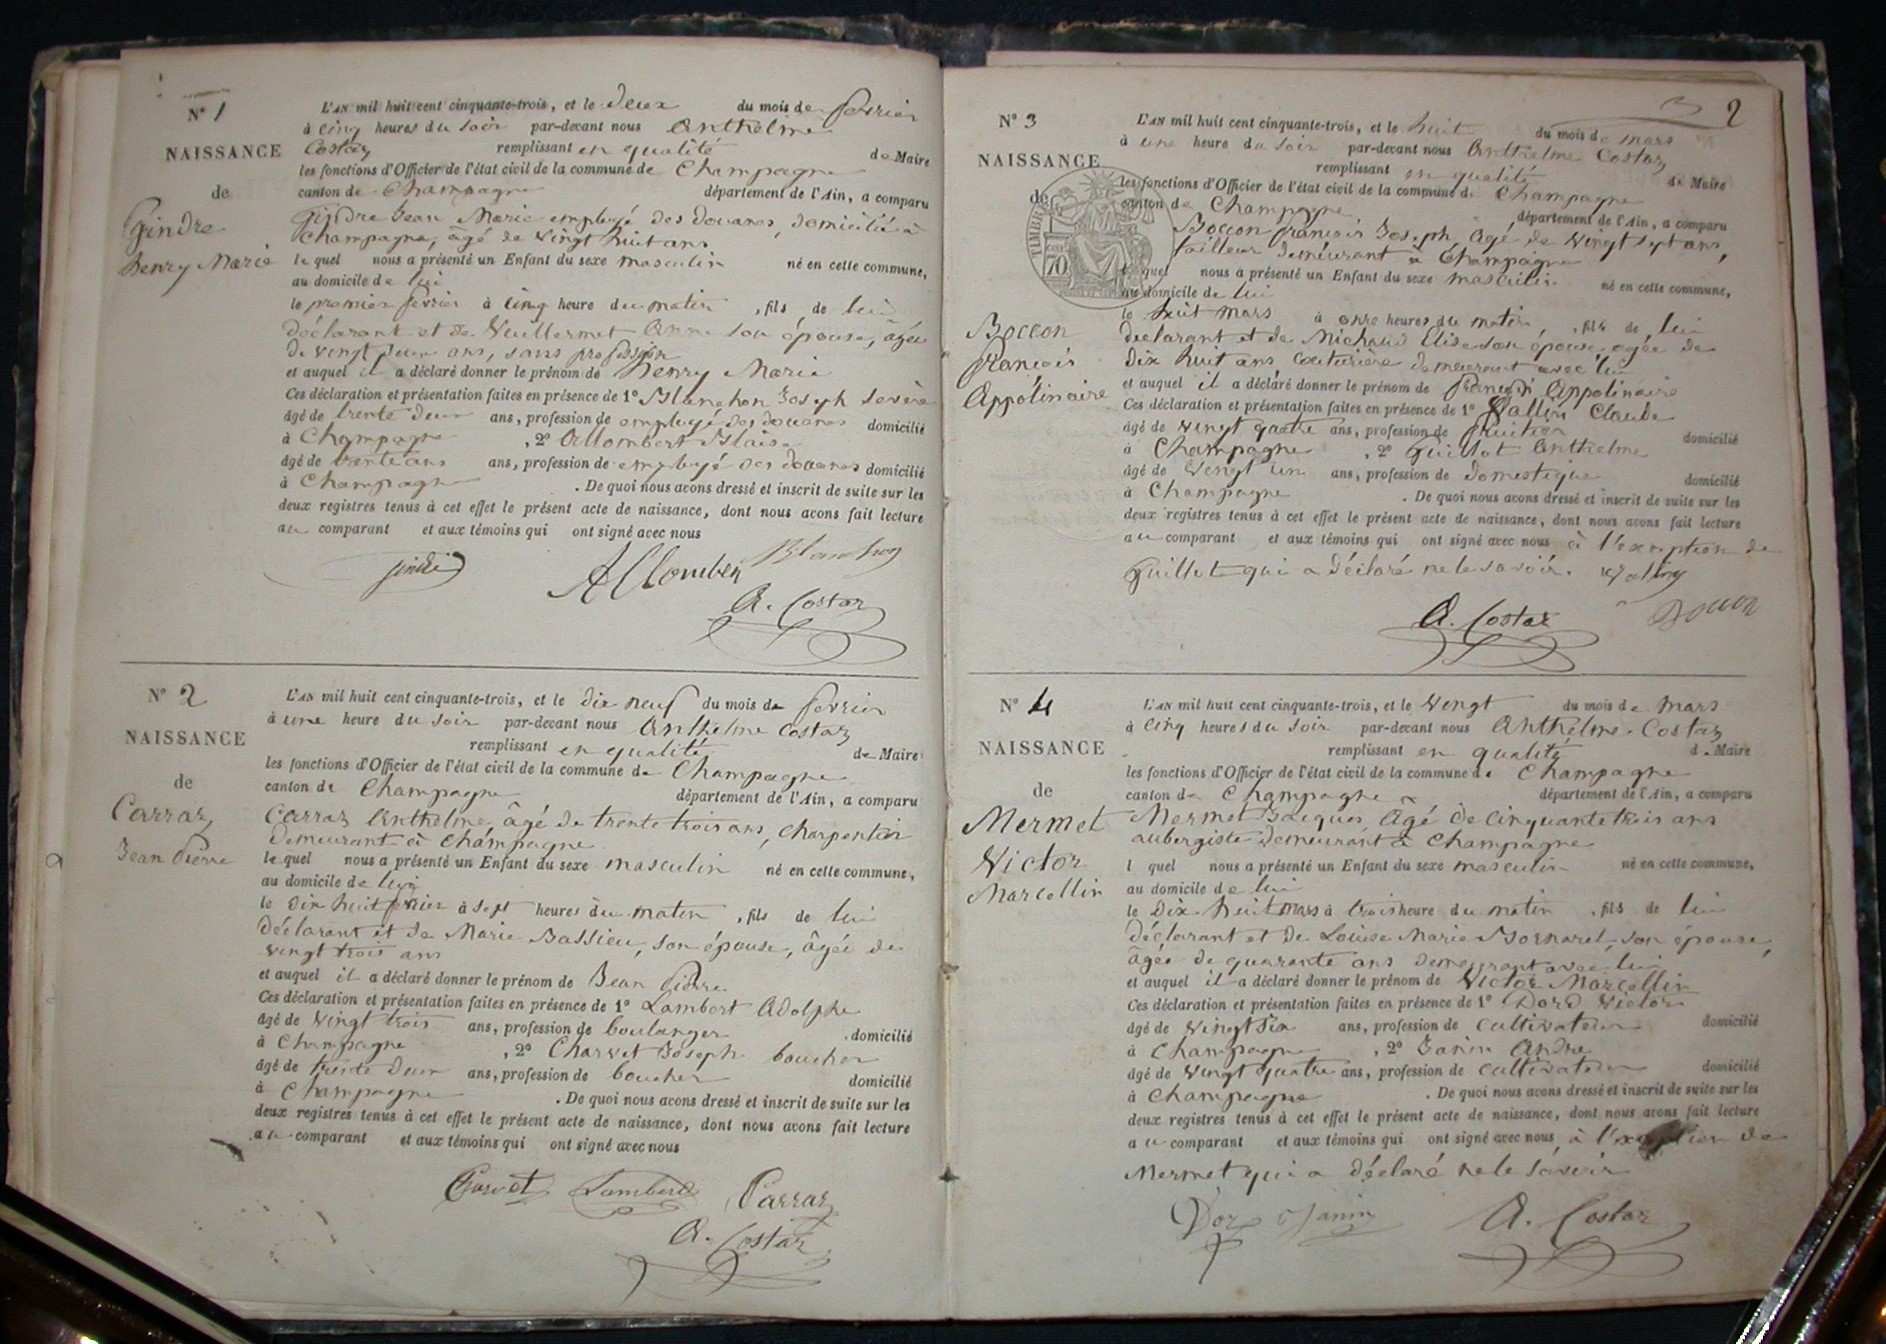 N° 1
NAISSANCE
de
Gindre
henry Marie
L'AN mil huit cent cinquante-trois, et le deux du mois de fevrier
à cinq heures du soir par-devant nous Anthelme
Costaz remplissant en qualité de Maire
les fonctions d'Officier de l'état civil de la commune de Champagne
canton de Champagne département de l'Ain, a comparu
Gindre Jean Marie employé des douanes, domicilié à
Champagne, âgé de vingt huit ans
le quel nous a présenté un Enfant du sexe masculin né en cette commune,
au domicile de lui
le premier fevrier à cinq heure du matin, fils de lui
déclarant et de Vuillermet Anne son épouse, âgée
de vingt deux ans, sans profession
et auquel il a déclaré donner le prénom de henry Marie
Ces déclaration et présentation faites en présence de 1° Blanchon Joseph
âgé de trente deux ans, profession de employé des douanes domicilié
à Champagne, 2° Allombert Blaise
âgé de trente ans ans, profession de employé des douanes domicilié
à Champagne. De quoi nous avons dressé et inscrit de suite sur les
deux registres tenus à cet effet le présent acte de naissance, dont nous avons fait lecture
au comparant et aux témoins qui ont signé avec nous
Blanchon
A. Costaz
N° 2
NAISSANCE
de
Carraz
Jean Pierre
L'AN mil huit cent cinquante-trois, et le dix neuf du mois de fevrier
à une heure du soir par-devant nous Anthelme Costaz
remplissant en qualité de Maire
les fonctions d'Officier de l'état civil de la commune de Champagne
canton de Champagne département de l'Ain, a comparu
Carraz Anthelme, âgé de trente trois ans, charpentier
demeurant à Champagne
le quel nous a présenté un Enfant du sexe masculin né en cette commune,
au domicile de lui
le dix huit fevrier à sept heures du matin, fils de lui
déclarant et de Marie Bassieu, son épouse, âgée de
vingt trois ans
et auquel il a déclaré donner le prénom de Jean Pierre
Ces déclaration et présentation faites en présence de 1° Lambert Adolphe
âgé de vingt trois ans, profession de boulanger domicilié
à Champagne, 2° Charvet Joseph boucher
âgé de trente deux ans, profession de boucher domicilié
à Champagne. De quoi nous avons dressé et inscrit de suite sur les
deux registres tenus à cet effet le présent acte de naissance, dont nous avons fait lecture
au comparant et aux témoins qui ont signé avec nous
Lambert Carraz
A. Costaz
2
N° 3
NAISSANCE
de
TIMBRE
70
Boccon
françois
Appolinaire
L'AN mil huit cent cinquante-trois, et le huit du mois de mars
à une heure du soir par-devant nous Anthelme Costaz
remplissant en qualité de Maire
les fonctions d'Officier de l'état civil de la commune de Champagne
canton de Champagne département de l'Ain, a comparu
Boccon françois Joseph, âgé de vingt sept ans,
tailleur demeurant à Champagne
le quel nous a présenté un Enfant du sexe masculin né en cette commune,
au domicile de lui
le huit mars à onze heures du matin, fils de lui
declarant et de Michaud Elise son épouse, agée de
dix huit ans couturière demeurant avec lui
et auquel il a déclaré donner le prénom de françois Appolinaire
Ces déclaration et présentation faites en présence de 1° Vallin Claude
âgé de vingt quatre ans, profession de domicilié
à Champagne, 2° Guillot Anthelme
âgé de vingt un ans, profession de domestique domicilié
à Champagne. De quoi nous avons dressé et inscrit de suite sur les
deux registres tenus à cet effet le présent acte de naissance, dont nous avons fait lecture
au comparant et aux témoins qui ont signé avec nous à l'exception de
Guillot qui a déclaré ne le savoir.
A. Costaz Boccon
N° 4
NAISSANCE
de
Mermet
Victor
Marcellin
L'AN mil huit cent cinquante-trois, et le vingt du mois de mars
à cinq heures du soir par-devant nous Anthelme Costaz
remplissant en qualité de Maire
les fonctions d'Officier de l'état civil de la commune de Champagne
canton de Champagne département de l'Ain, a comparu
Mermet Jacques, âgé de cinquante trois ans
aubergiste demeurant à Champagne
l quel nous a présenté un Enfant du sexe masculin né en cette commune,
au domicile de lui
le dix huit mars à trois heure du matin, fils de lui
déclarant et de Louise Marie Bornarel, son épouse,
âgée de quarante ans demeurant avec lui
et auquel il a déclaré donner le prénom de Victor Marcellin
Ces déclaration et présentation faites en présence de 1° Dord Victor
âgé de vingt six ans, profession de cultivateur domicilié
à Champagne, 2° Janin André
âgé de vingt quatre ans, profession de cultivateur domicilié
à Champagne. De quoi nous avons dressé et inscrit de suite sur les
deux registres tenus à cet effet le présent acte de naissance, dont nous avons fait lecture
au comparant et aux témoins qui ont signé avec nous, à l'exception de
Mermet qui a déclaré ne le savoir
Janin A. Costaz